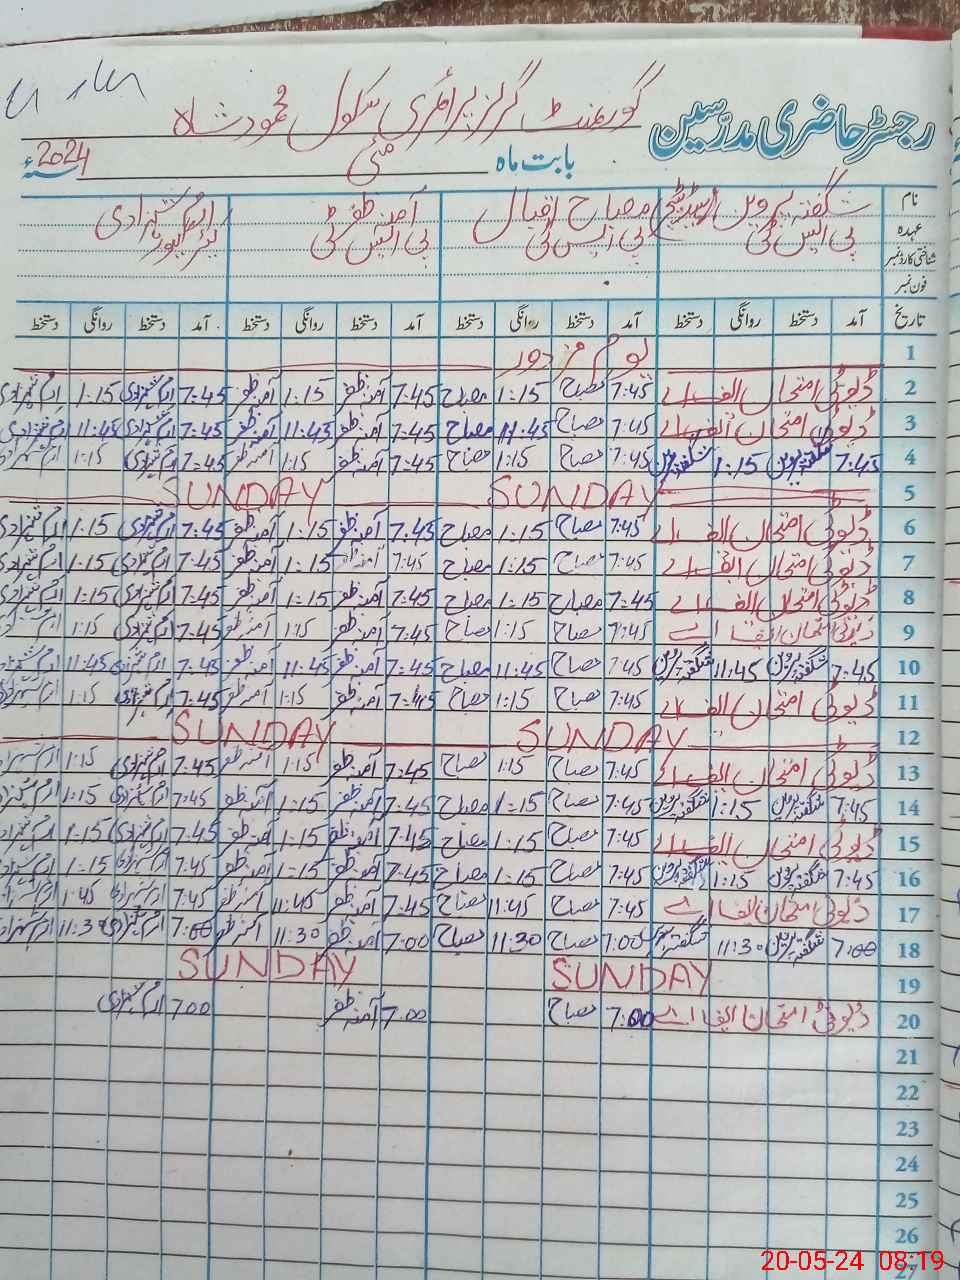 رجسٹر حاضری مدرسین گورنمنٹ گرلز پرائمری سکول محمود شاہ
بابت ماہ مئی سنہ 2024ء
نام شگفتہ پروین مصباح اقبال آمنہ ظفر ارم شہزادی
عہدہ پی ایس ٹی پی ایس ٹی پی ایس ٹی
شناختی کارڈ نمبر
فون نمبر
تاریخ آمد دستخط روانگی دستخط آمد دستخط روانگی دستخط آمد دستخط روانگی دستخط آمد دستخط روانگی دستخط
1 یوم مزدور
2 ڈیوٹی امتحان ایف اے 7:45 مصباح 1:15 مصباح 7:45 آمنہ ظفر 1:15 آمنہ ظفر 7:45 ارم شہزادی 1:15 ارم شہزادی
3 ڈیوٹی امتحان ایف اے 7:45 مصباح 11:45 مصباح 7:45 آمنہ ظفر 11:45 آمنہ ظفر 7:45 ارم شہزادی 11:45 ارم شہزادی
4 7:45 شگفتہ پروین 1:15 شگفتہ پروین 7:45 مصباح 1:15 مصباح 7:45 آمنہ ظفر 1:15 آمنہ ظفر 7:45 ارم شہزادی 1:15 ارم شہزادی
5 SUNDAY SUNDAY
6 ڈیوٹی امتحان ایف اے 7:45 مصباح 1:15 مصباح 7:45 آمنہ ظفر 1:15 آمنہ ظفر 7:45 ارم شہزادی 1:15 ارم شہزادی
7 ڈیوٹی امتحان ایف اے 7:45 مصباح 1:15 مصباح 7:45 آمنہ ظفر 1:15 آمنہ ظفر 7:45 ارم شہزادی 1:15 ارم شہزادی
8 ڈیوٹی امتحان ایف اے 7:45 مصباح 1:15 مصباح 7:45 آمنہ ظفر 1:15 آمنہ ظفر 7:45 ارم شہزادی 1:15 ارم شہزادی
9 ڈیوٹی امتحان ایف اے 7:45 مصباح 1:15 مصباح 7:45 آمنہ ظفر 1:15 آمنہ ظفر 7:45 ارم شہزادی 1:15 ارم شہزادی
10 7:45 شگفتہ پروین 11:45 شگفتہ پروین 7:45 مصباح 11:45 مصباح 7:45 آمنہ ظفر 11:45 آمنہ ظفر 7:45 ارم شہزادی 11:45 ارم شہزادی
11 ڈیوٹی امتحان ایف اے 7:45 مصباح 1:15 مصباح 7:45 آمنہ ظفر 1:15 آمنہ ظفر 7:45 ارم شہزادی 1:15 ارم شہزادی
12 SUNDAY SUNDAY
13 ڈیوٹی امتحان ایف اے 7:45 مصباح 1:15 مصباح 7:45 آمنہ ظفر 1:15 آمنہ ظفر 7:45 ارم شہزادی 1:15 ارم شہزادی
14 7:45 شگفتہ پروین 1:15 شگفتہ پروین 7:45 مصباح 1:15 مصباح 7:45 آمنہ ظفر 1:15 آمنہ ظفر 7:45 ارم شہزادی 1:15 ارم شہزادی
15 ڈیوٹی امتحان ایف اے 7:45 مصباح 1:15 مصباح 7:45 آمنہ ظفر 1:15 آمنہ ظفر 7:45 ارم شہزادی 1:15 ارم شہزادی
16 7:45 شگفتہ پروین 1:15 شگفتہ پروین 7:45 مصباح 1:15 مصباح 7:45 آمنہ ظفر 1:15 آمنہ ظفر 7:45 ارم شہزادی 1:15 ارم شہزادی
17 ڈیوٹی امتحان ایف اے 7:45 مصباح 11:45 مصباح 7:45 آمنہ ظفر 11:45 آمنہ ظفر 7:45 ارم شہزادی 1:45 ارم شہزادی
18 7:00 شگفتہ پروین 11:30 شگفتہ پروین 7:00 مصباح 11:30 مصباح 7:00 آمنہ ظفر 11:30 آمنہ ظفر 7:00 ارم شہزادی 11:30 ارم شہزادی
19 SUNDAY SUNDAY
20 ڈیوٹی امتحان ایف اے 7:00 مصباح 7:00 آمنہ ظفر 7:00 ارم شہزادی
21
22
23
24
25
26
27
20-05-24 08:19